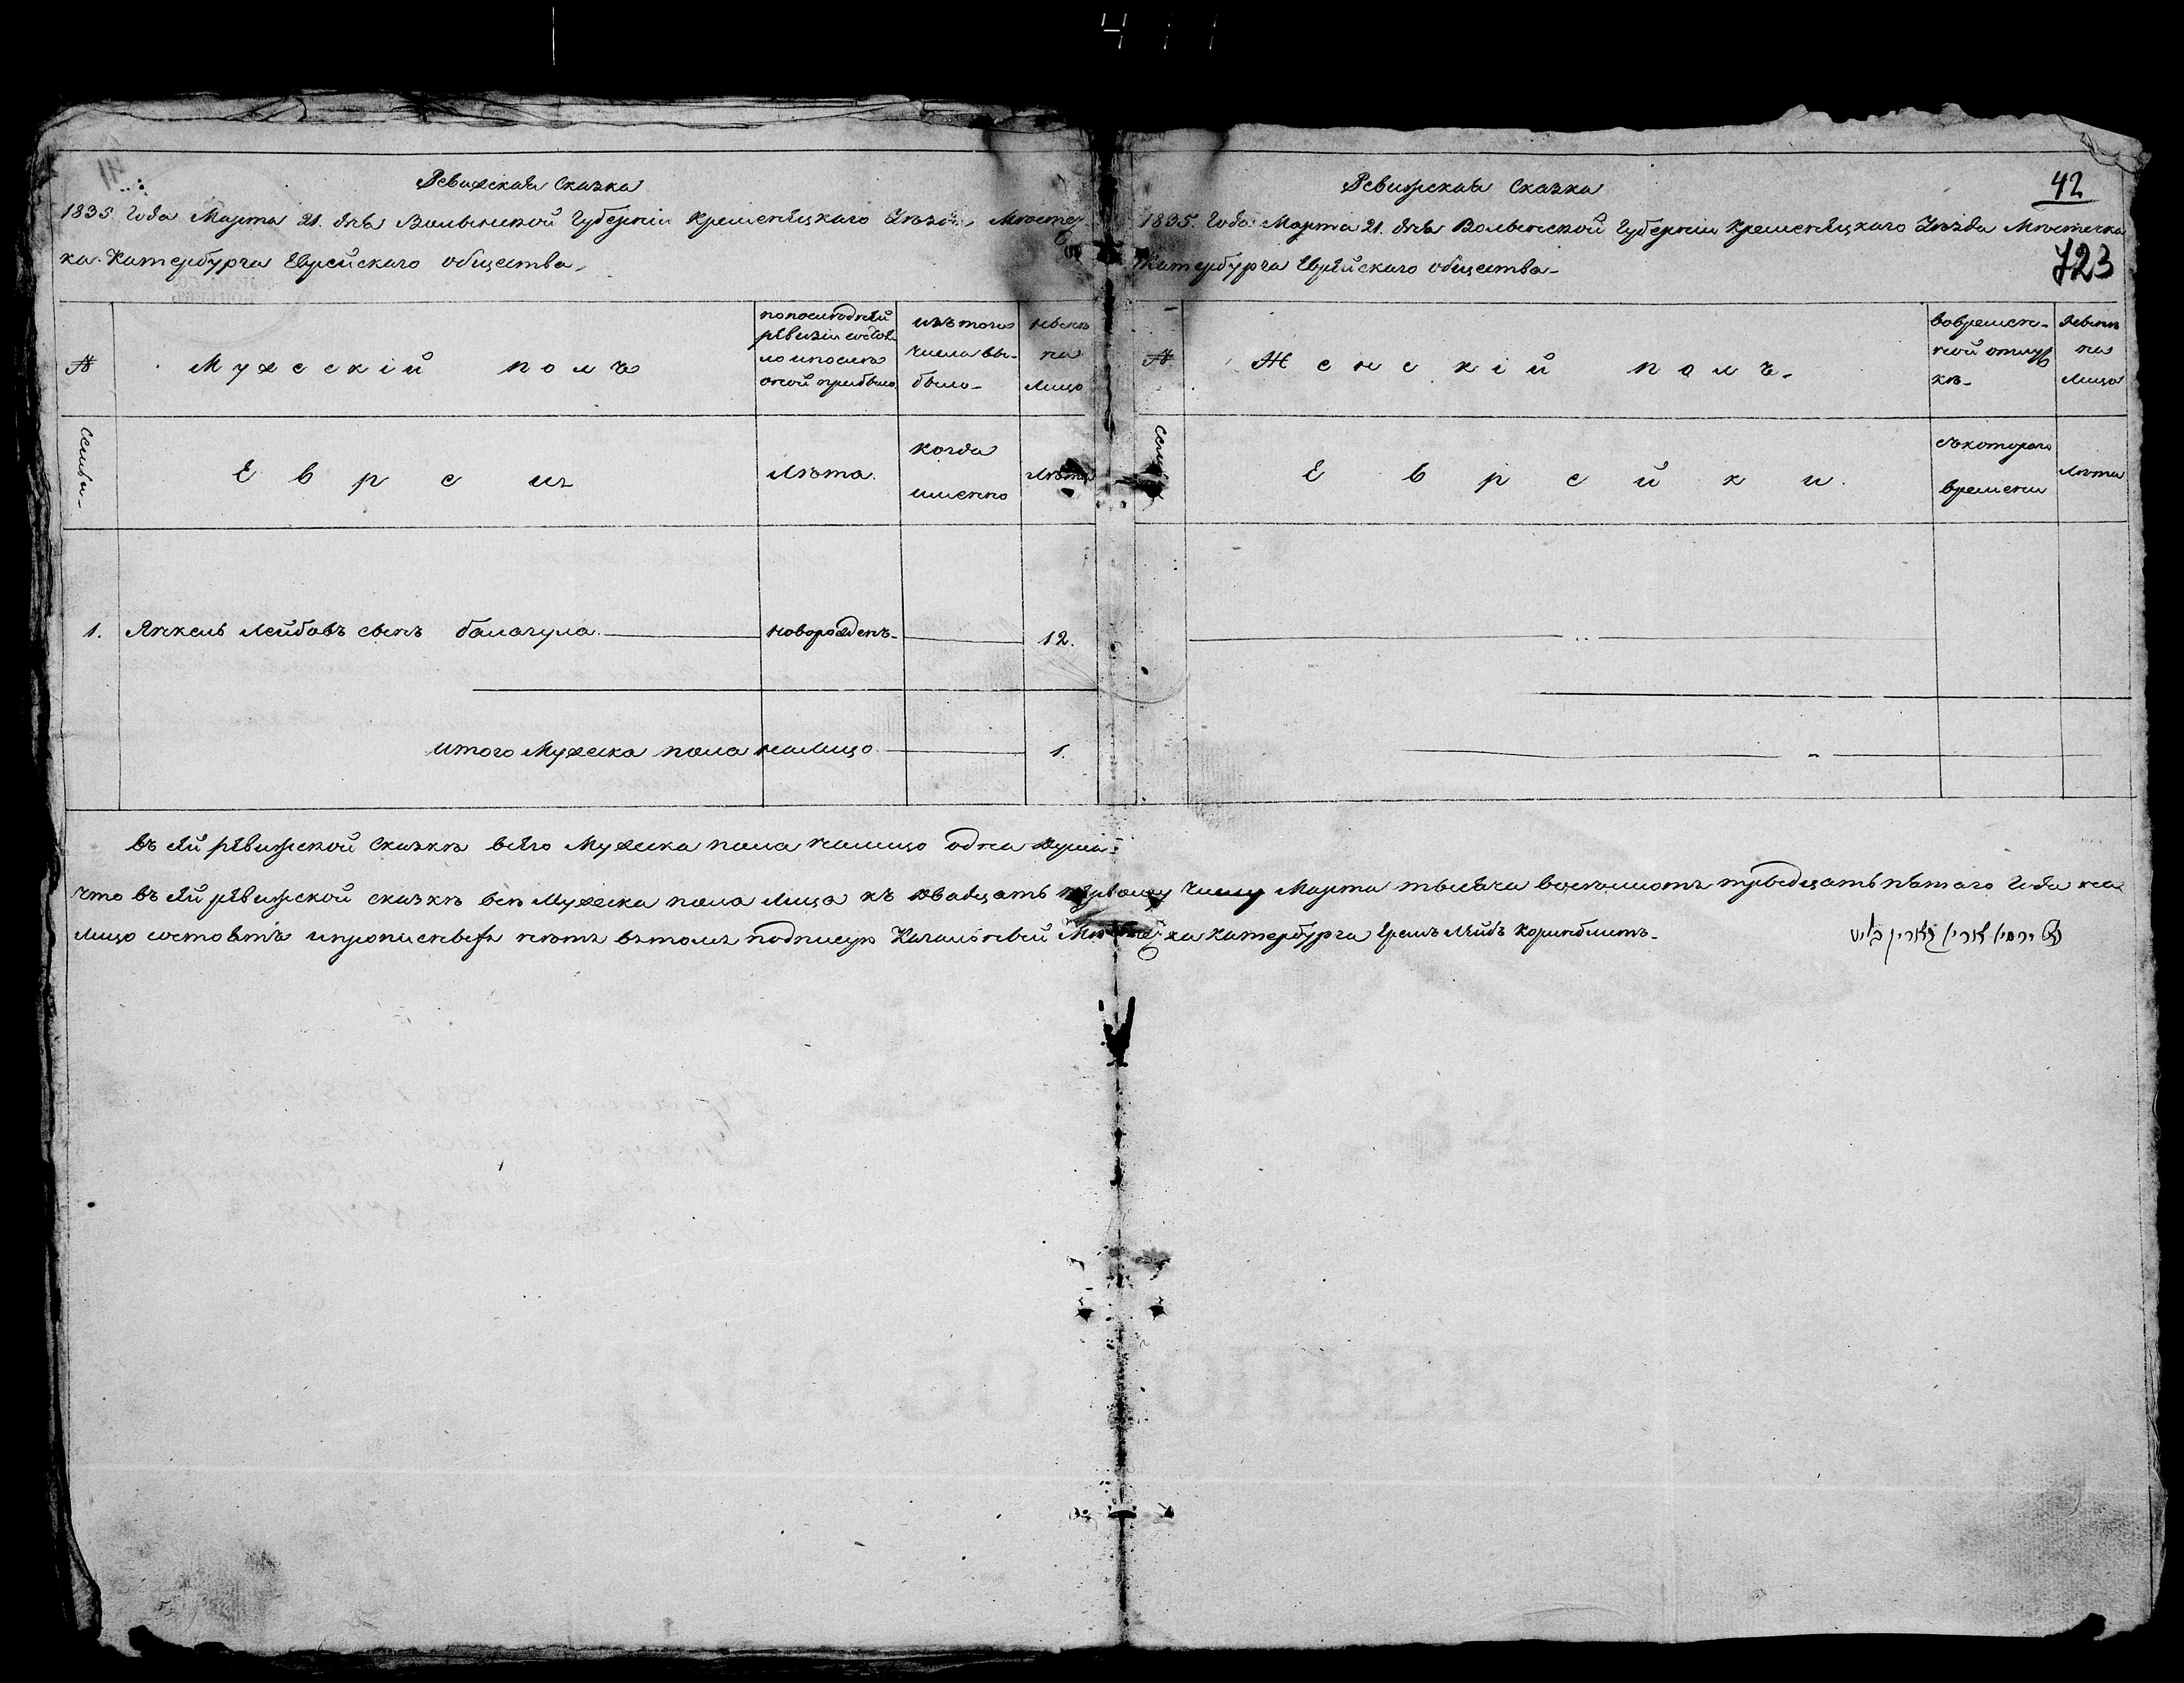 Ревизская Сказка
1835. Года Марта 21. дня Волынской Губернии Кременецкаго Уезда, Местеч
ка Катербурга Еврейскаго общества,
№
Мужескій полъ
по последней
ревизіи состоя-
ло и после
оной прибыло
изъ того
числа вы-
было-
ныне
на
лицо
Семьи-
Евреи
Лѣта.
когда
именно
Лѣта
1. Янкель Лейбовъ сынъ балагула. новорожденъ- 12.
итого Мужеска пола налицо 1.
Ревизская Сказка
42
1835. Года Марта 21. дня Волынской Губерніи Кременецкаго Уѣзда Мѣстечка
Катербурга Еврейскаго общества-
723
№
Женскій полъ-
во времен-
ной отлуч
кѣ-
Ныне
на
лицо
Семьи
Еврейки.
съ котораго
времени
лѣта
въ сей ревизской сказкѣ всего Мужеска пола налицо одна душа-
что въ сей ревизской сказкѣ все Мужеска пола Лица къ двадцать первому числу Марта тысяча восемьсотъ тридцать пятаго Года на
лицо состоятъ и прописныхъ нетъ въ томъ подписую Кагальный Местечка Катербурга Ерешъ Лейбъ Коринблитъ-